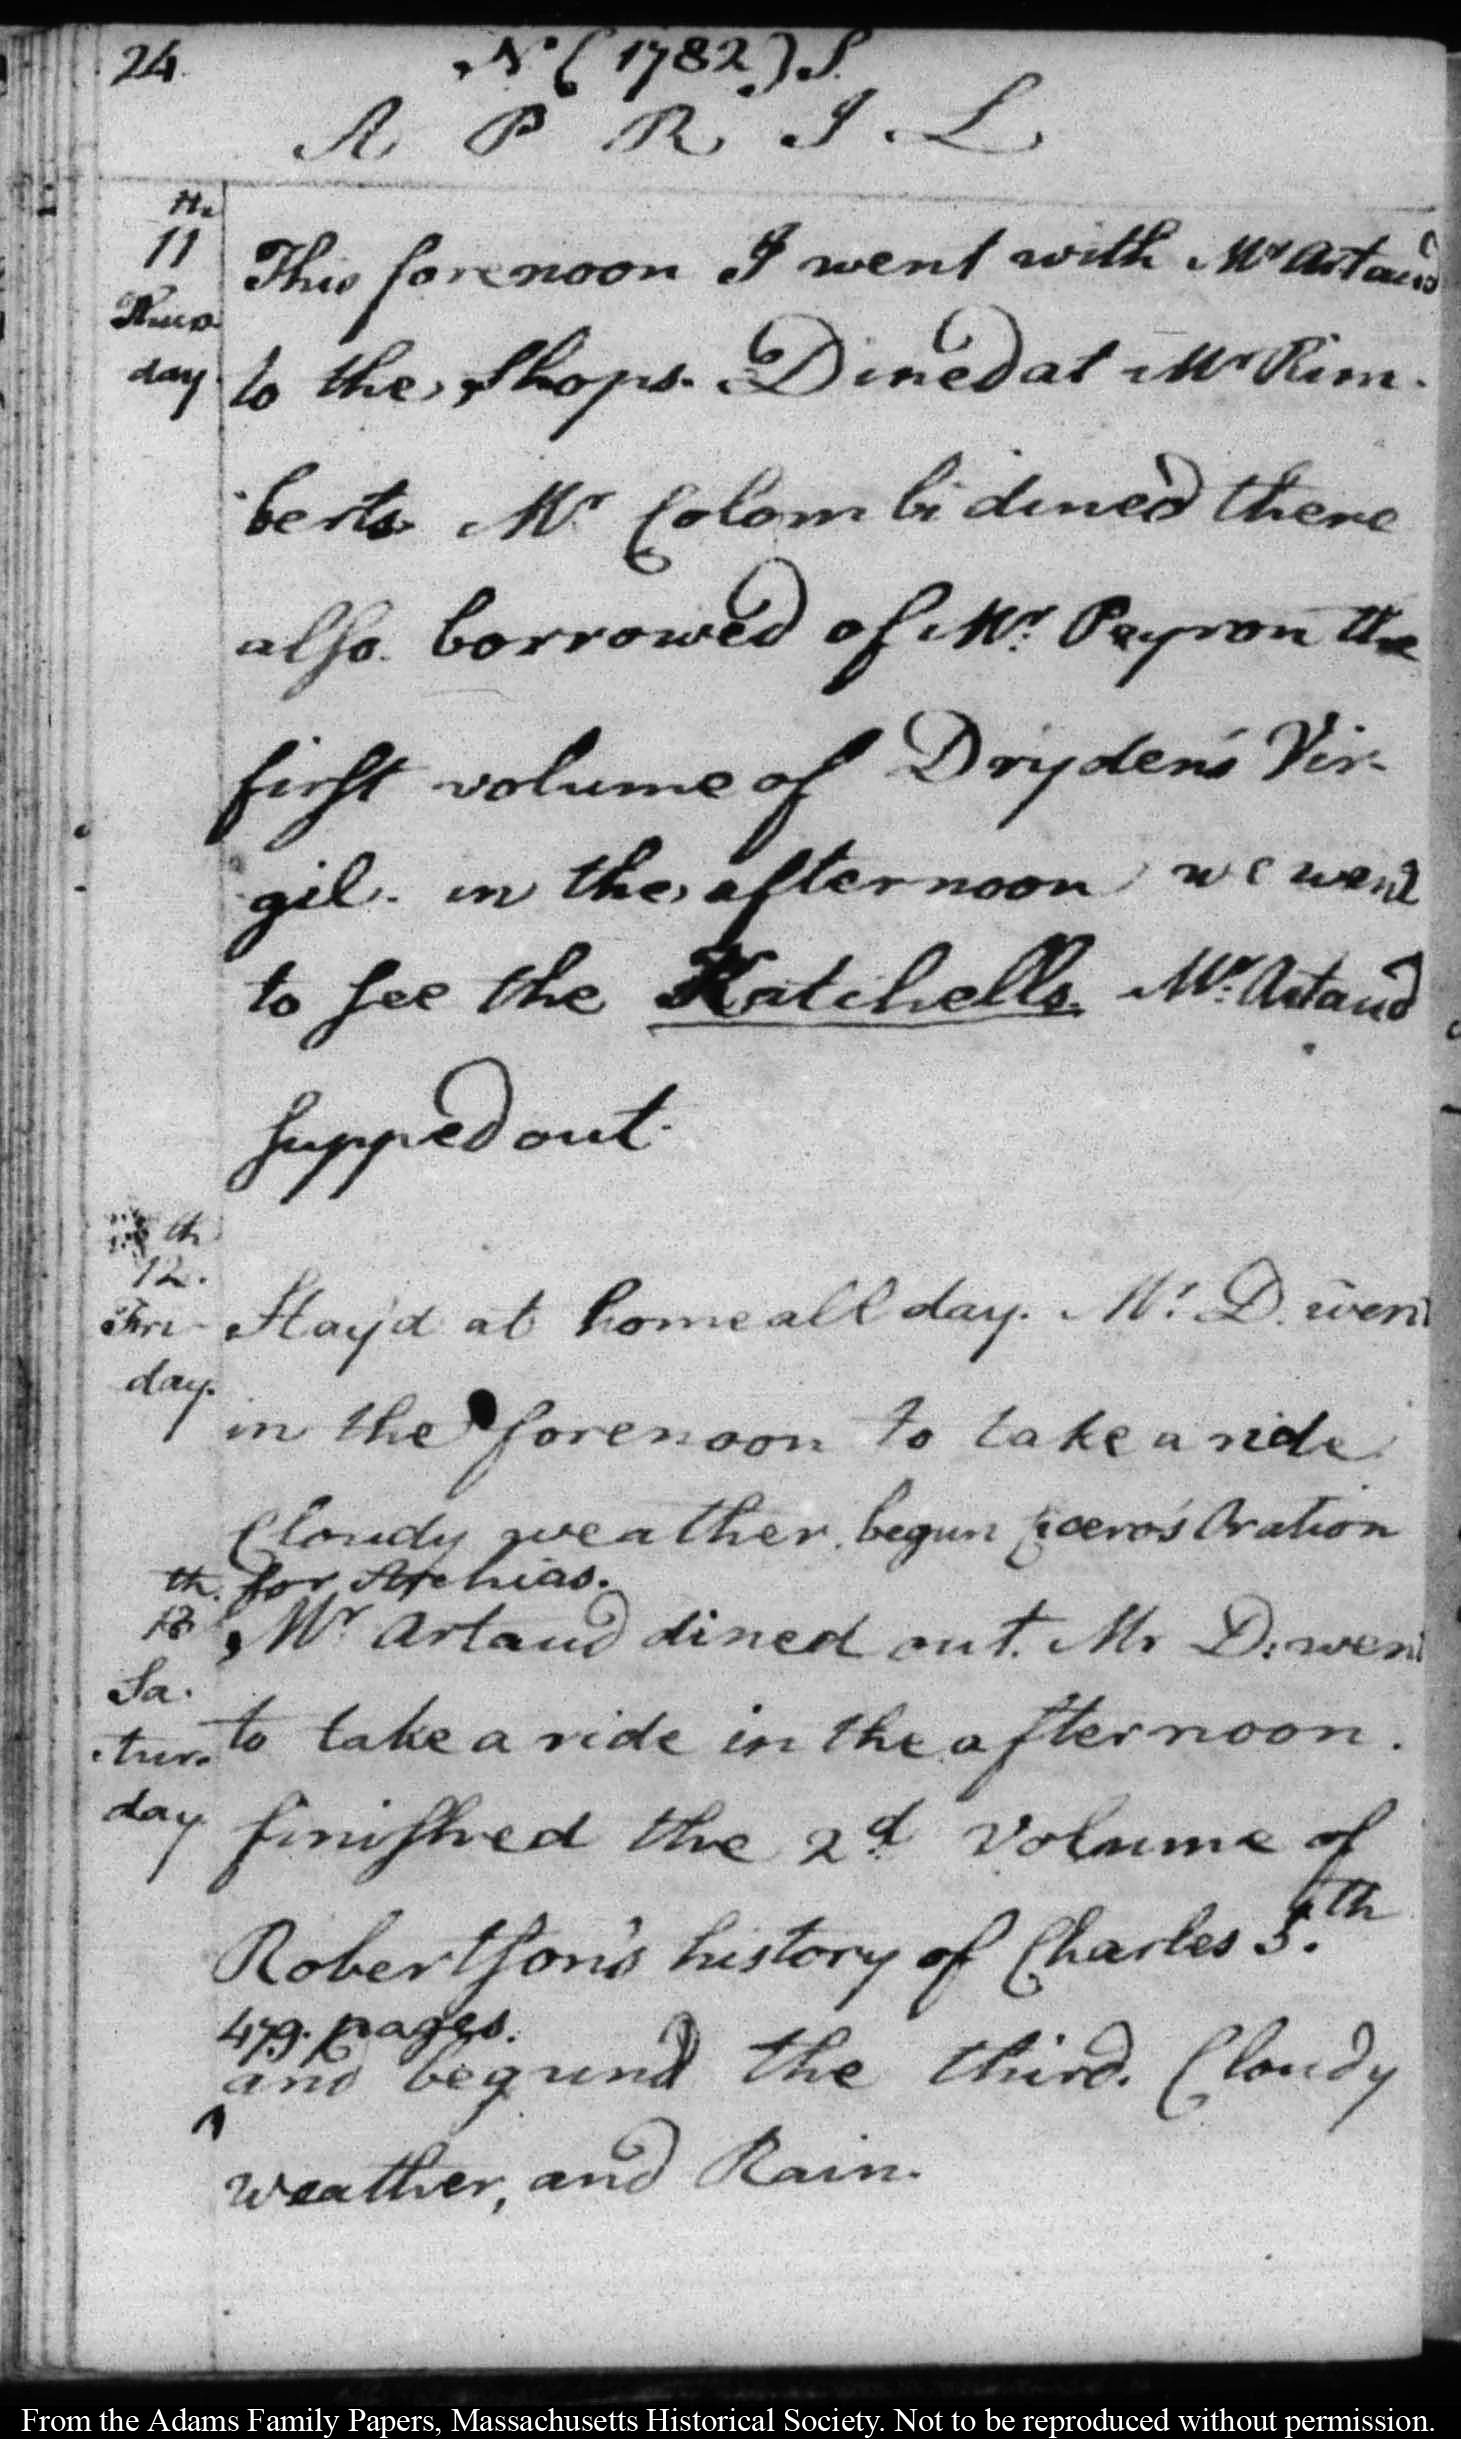 24. N (1782) S.
A P R I L
th
11
Thurs
day
This forenoon I went with Mr Artaud
to the Shops. Dined at Mr Rim-
berts Mr Colombi dined there
also. borrowed of Mr. Peyron the
first volume of Dryden's Vir-
gil. in the afternoon we went
to see the Katchells. Mr. Artaud
supped out.
th
12.
Fri-
day.
Stay'd at home all day. Mr. D. went
in the forenoon to take a ride
Cloudy weather. begun Cicero's Oration
for Archias.
th.
13
Sa-
tur-
day
Mr Artaud dined out. Mr D. went
to take a ride in the afternoon.
finished the 2d. volume of
Robertson's history of Charles 5.th
479. pages.
and begun the third. Cloudy
weather, and Rain.
From the Adams Family Papers, Massachusetts Historical Society. Not to be reproduced without permission.